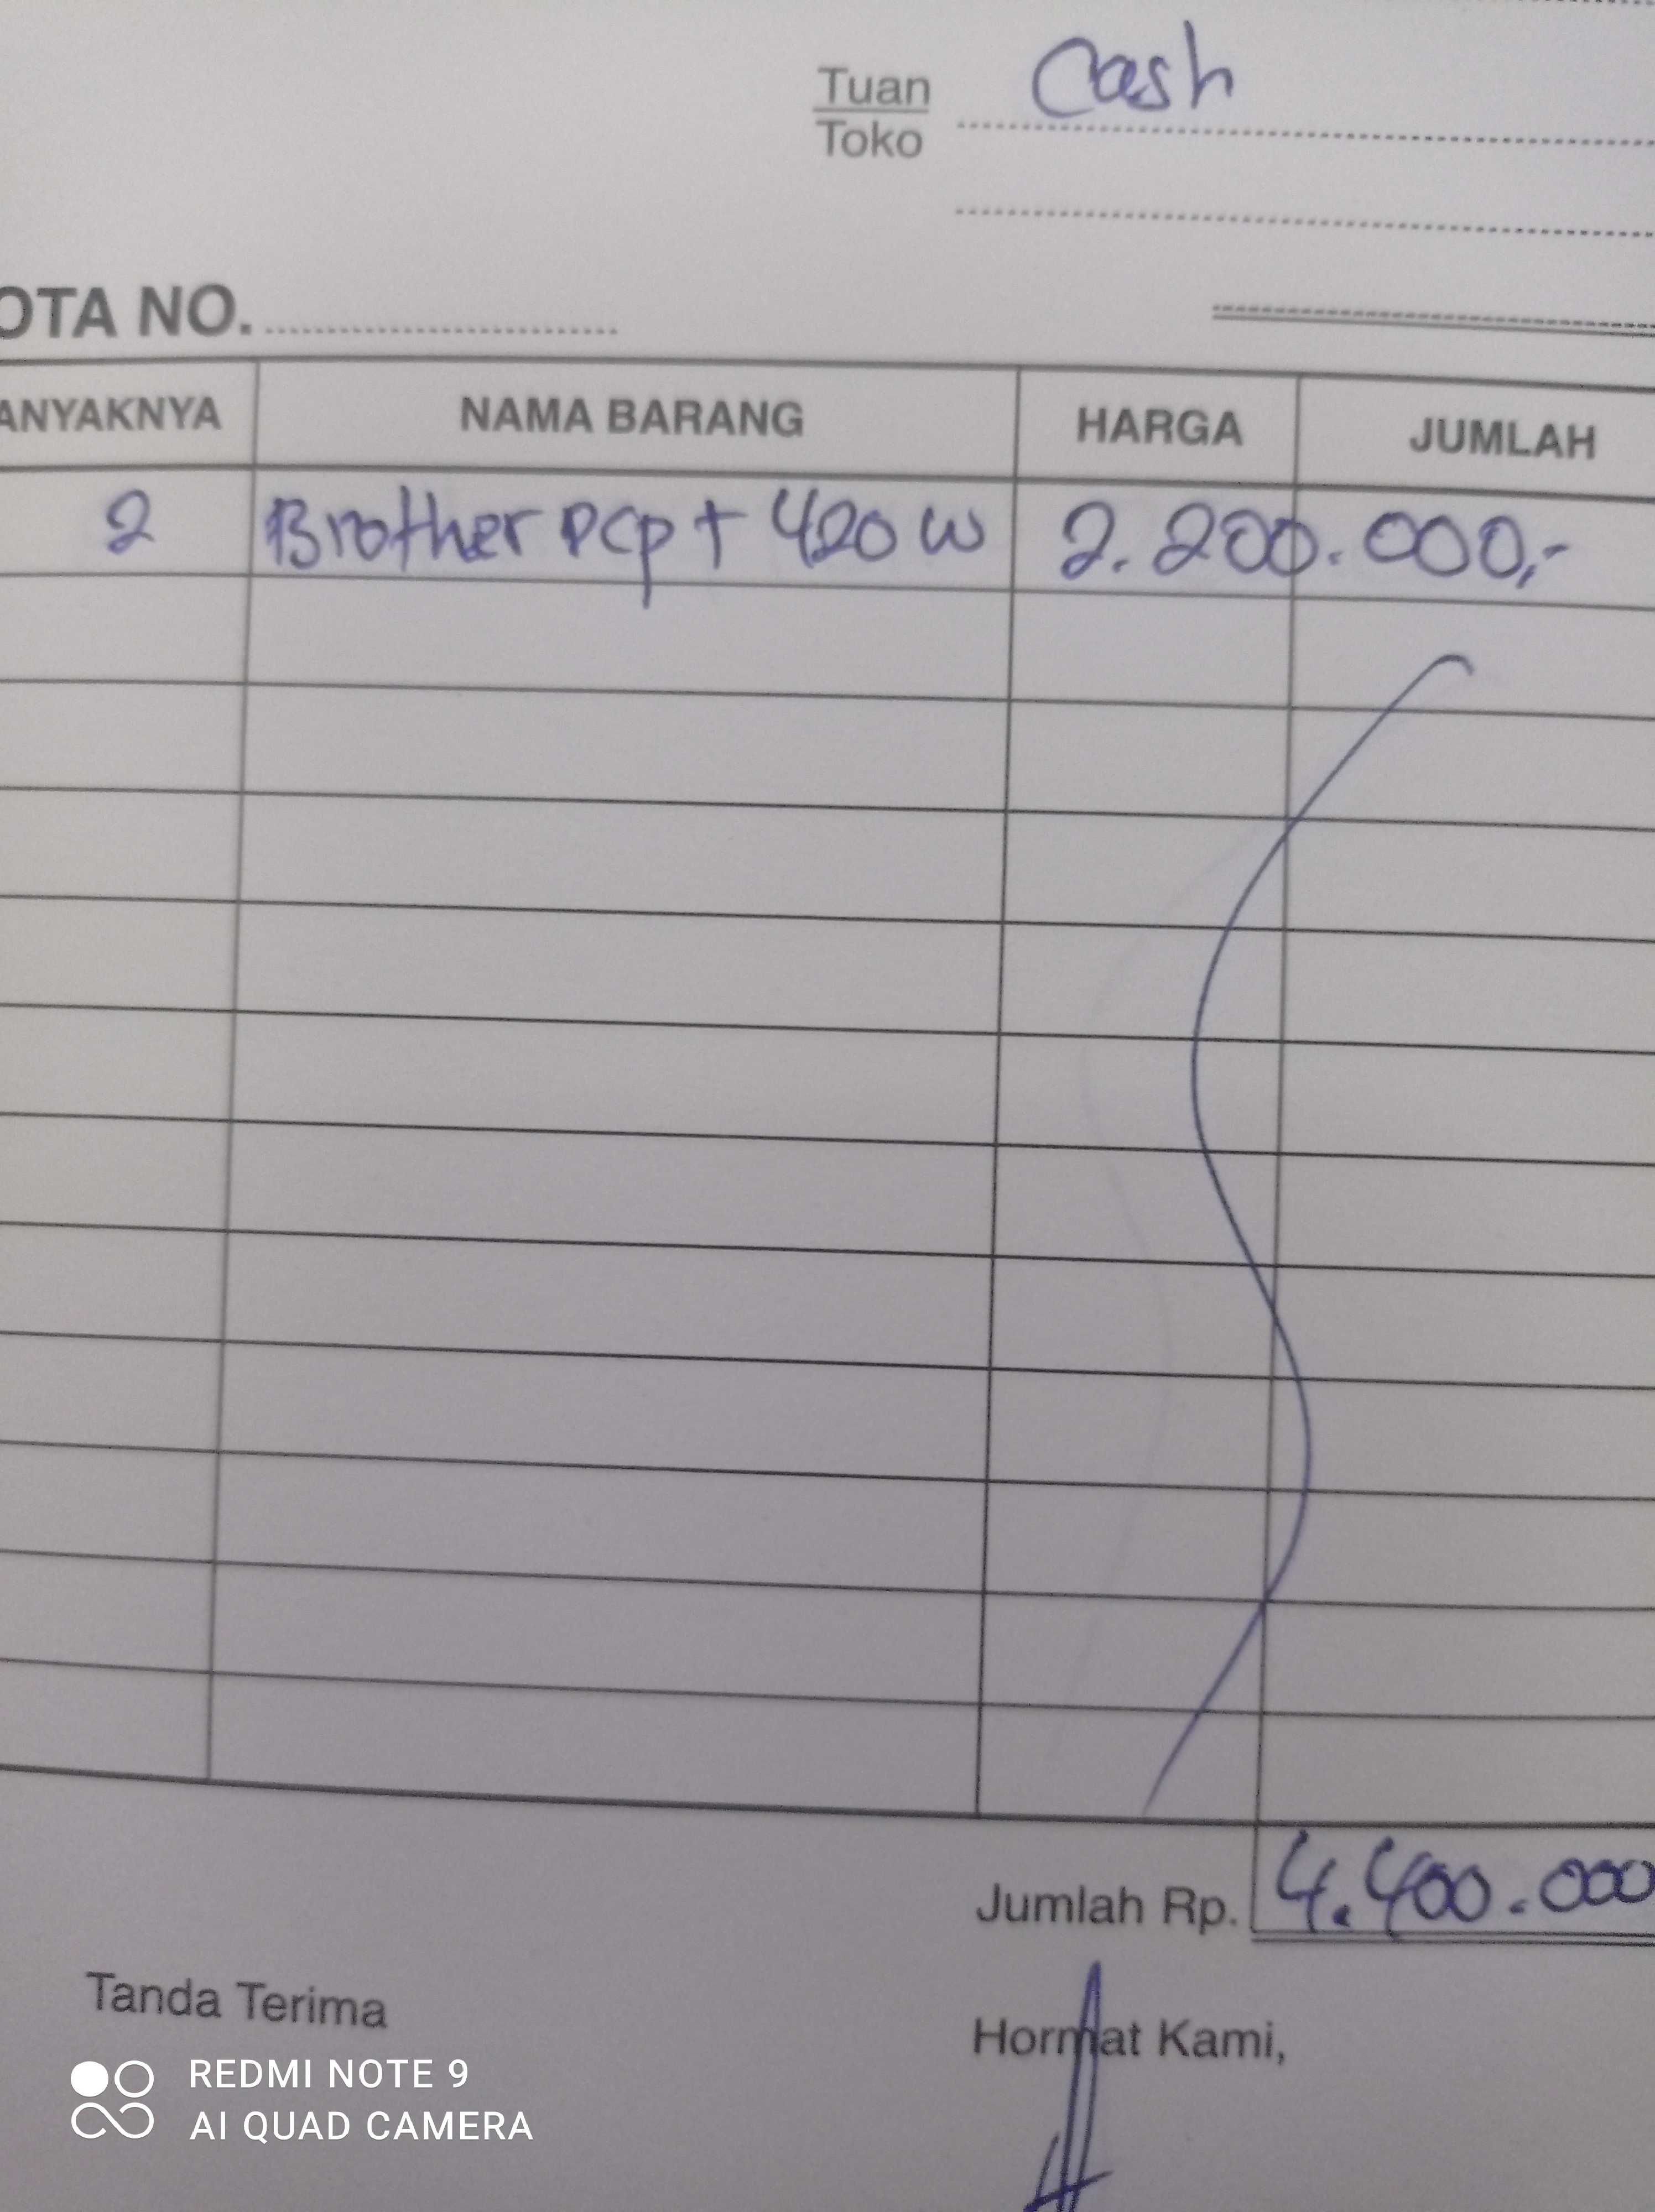 Tuan Cash
Toko
OTA NO.
ANYAKNYA NAMA BARANG HARGA JUMLAH
2 Brother DCP T 420 W 2.200.000,-
Jumlah Rp. 4.400.000
Tanda Terima
Hormat Kami,
REDMI NOTE 9
AI QUAD CAMERA